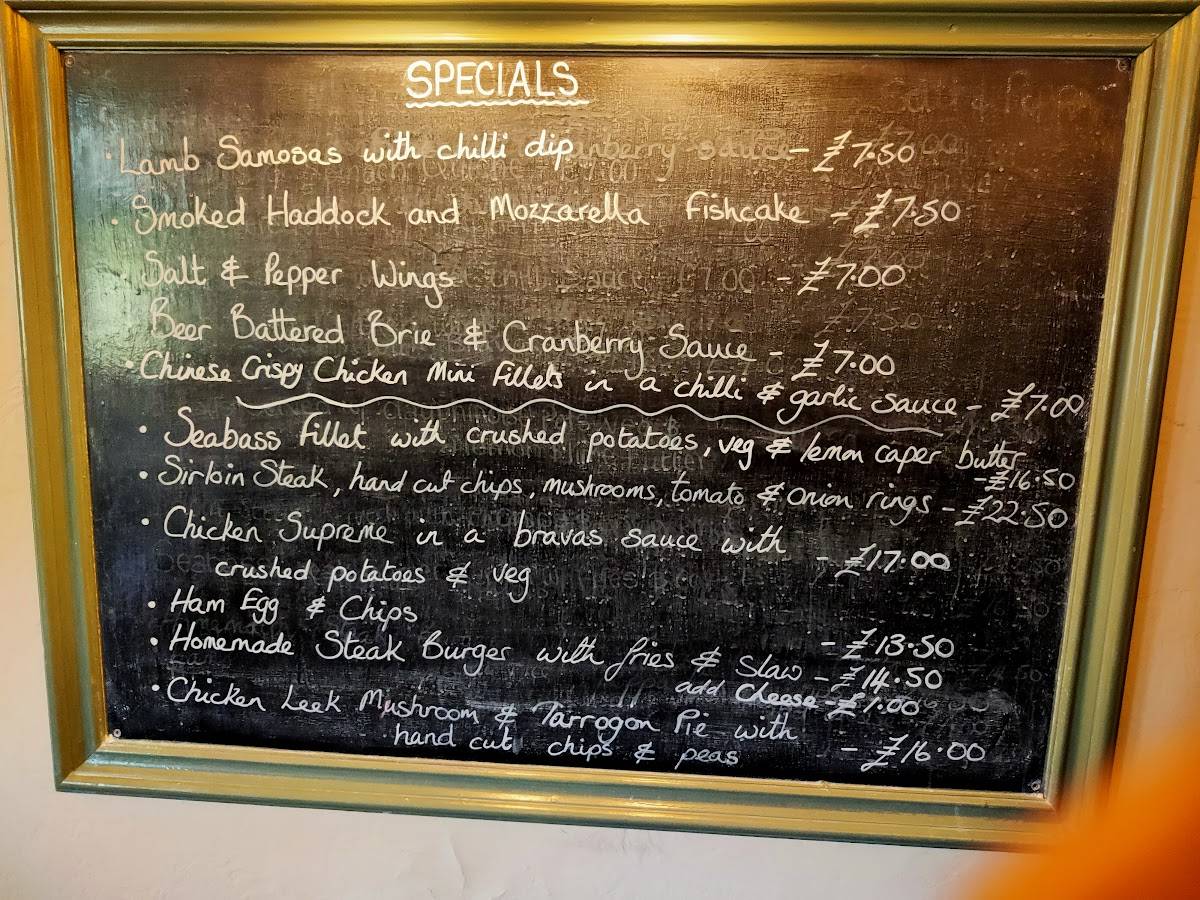 SPECIALS
· Lamb Samosas with chilli dip - £7.50
· Smoked Haddock and Mozzarella Fishcake - £7.50
Salt & Pepper Wings - £7.00
Beer Battered Brie & Cranberry Sauce - £7.00
· Chinese Crispy Chicken Mini Fillets in a chilli & garlic sauce - £7.00
· Seabass Fillet with crushed potatoes, veg & lemon caper butter
- £16.50
· Sirloin Steak, hand cut chips, mushrooms, tomato & onion rings - £22.50
· Chicken Supreme in a bravas sauce with - £17.00
crushed potatoes & veg
· Ham Egg & Chips - £13.50
· Homemade Steak Burger with fries & Slaw - £14.50
add Cheese - £1.00
· Chicken Leek Mushroom & Tarrogon Pie with
hand cut chips & peas - £16.00